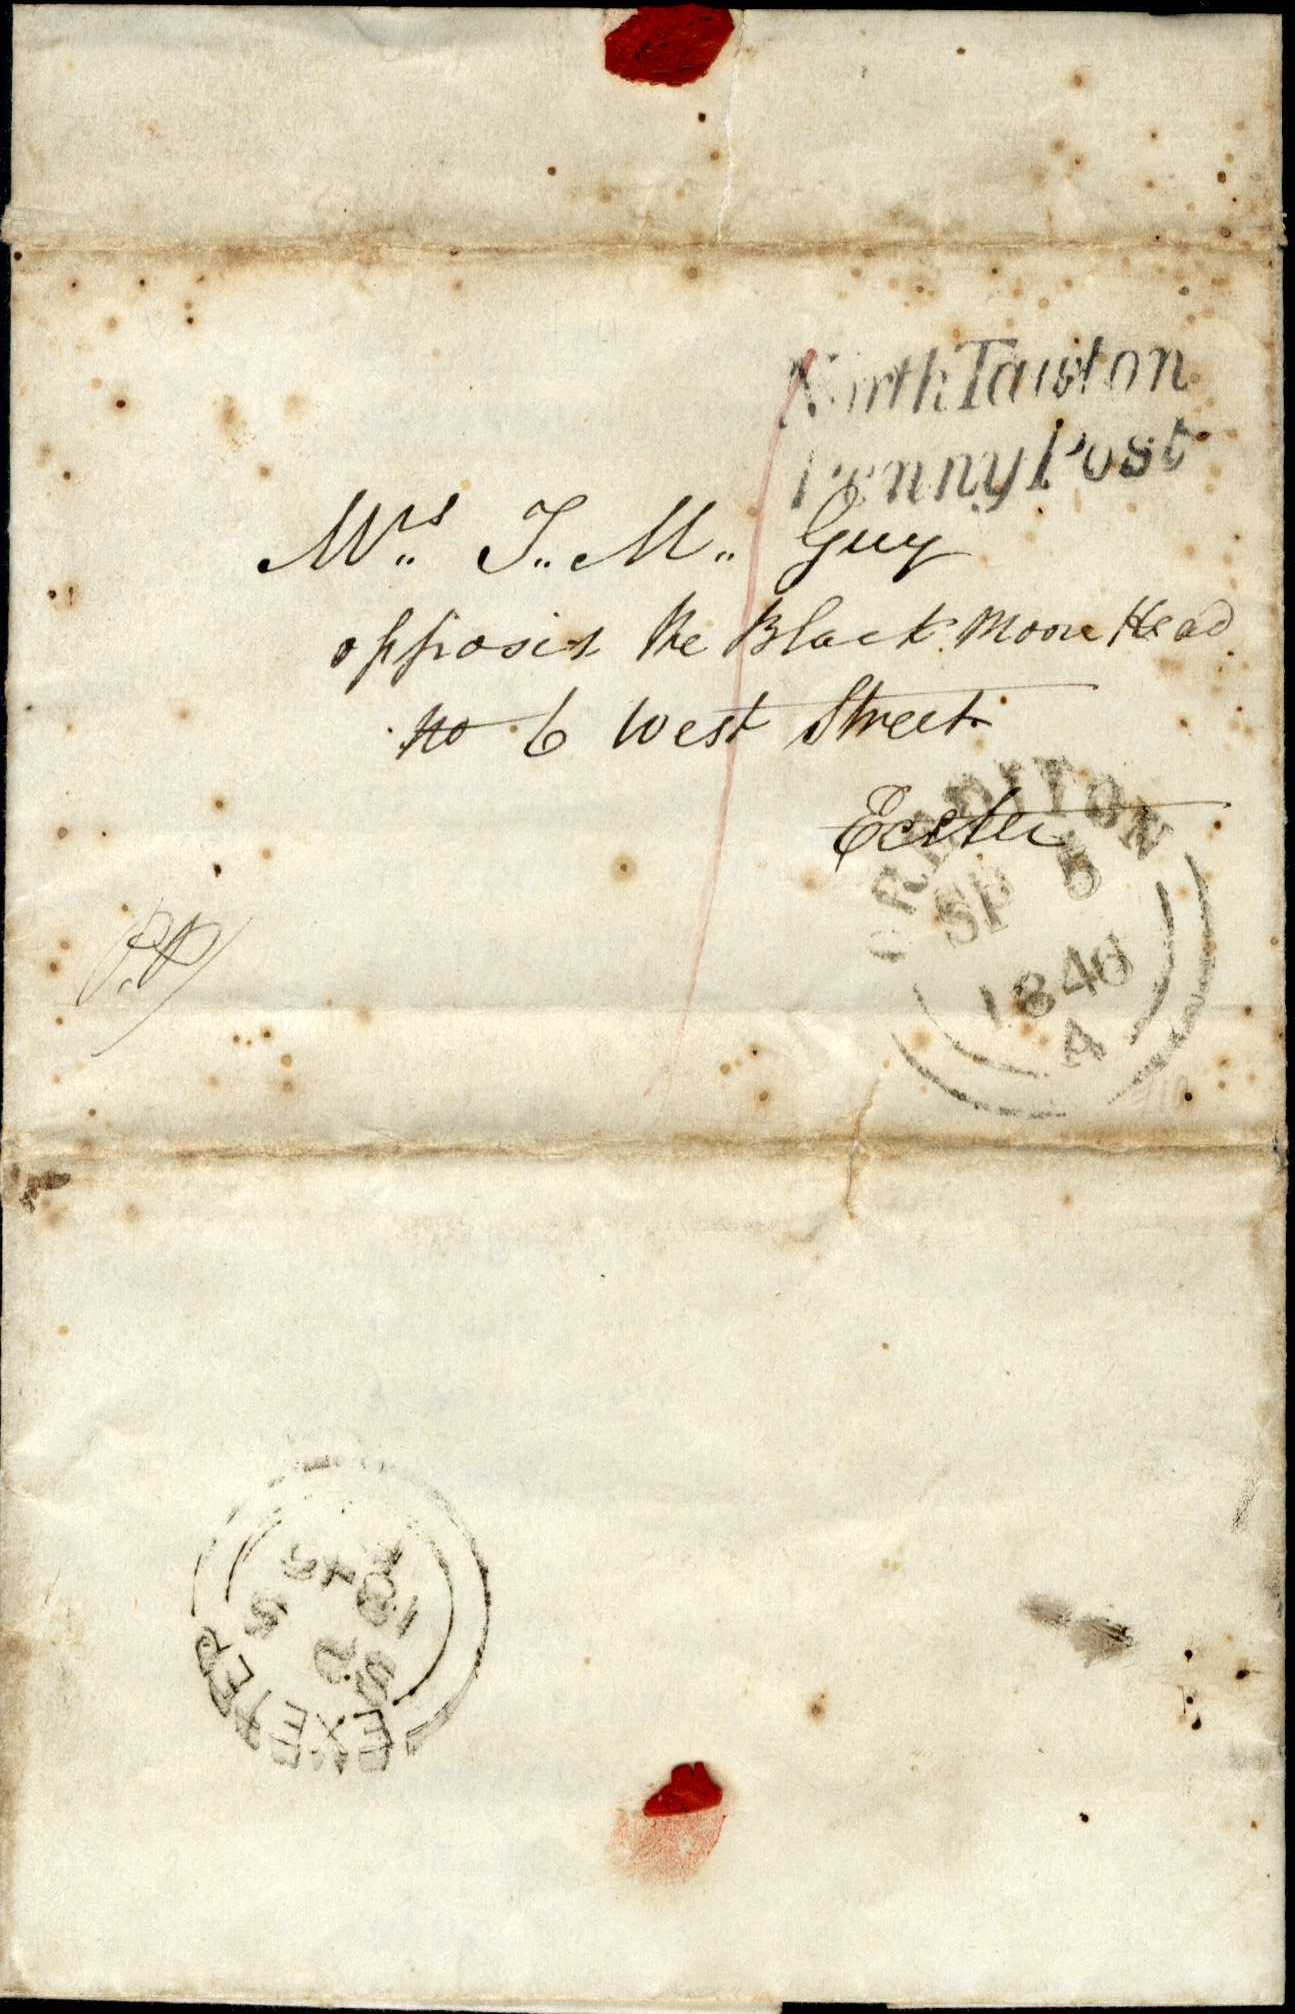 North Tawton
Penny Post
Mrs J. M. Guy
opposit the Black Moore Head
No 6 West Street
Exeter
CREDITON
SP 5
1846
A
P.P
EXETER
SP 5
1846